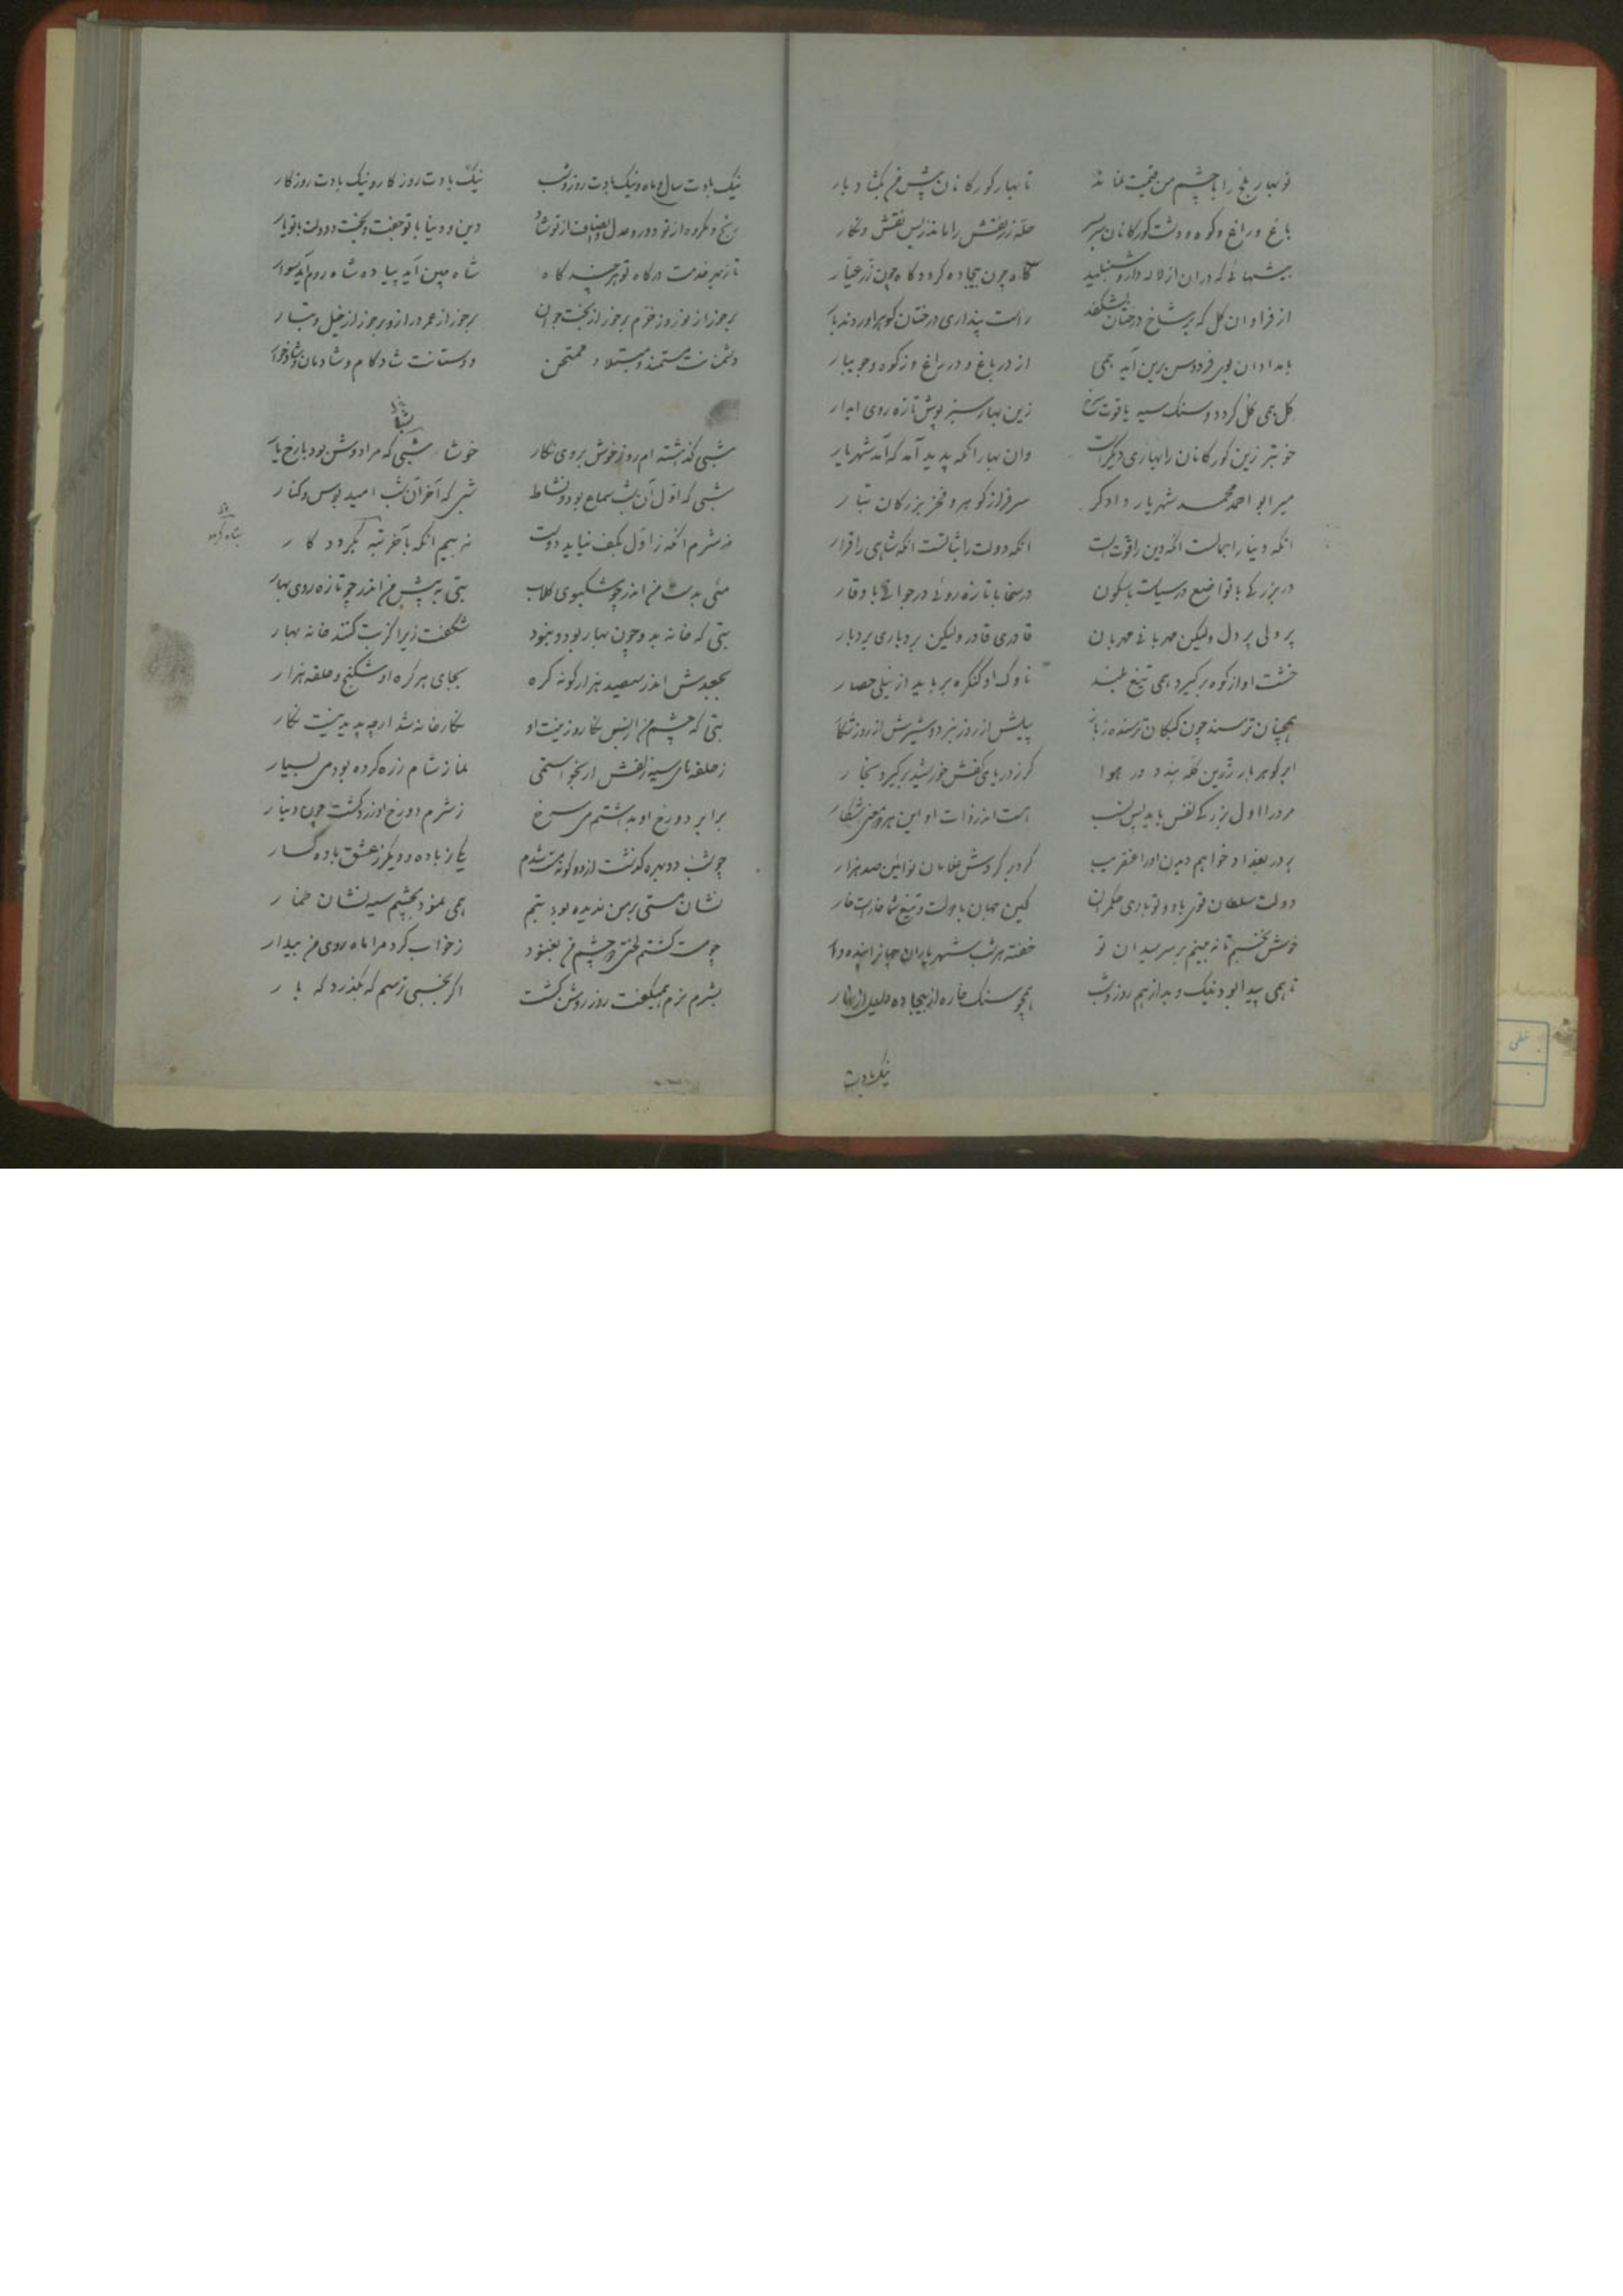 نوبهار بلخ را با چشم من قیمت نماند تا بهار کورکانان پیش من بکشاد بار
باغ و راغ و کوه و دشت کورکانان سربسر حله زربفتش را ماند زبس نقش و نکار
بیشهائیکه دران از لاله دارد شنبلید کاه چون بیجاده کردد کاه چون زر عیار
از فراوان کل که بر شاخ درختان بشکفد راست پنداری درختان کوهر اوردند بار
بامدادان بوی فردوس برین آید همی از در باغ و در راغ و ز کوه و جویبار
کل همی کل کردد و سنک سیه یاقوت سرخ زین بهار سبز پوش تازه روی ابدار
خوبتر زین کورکانان را بهاری دیکر است وان بهار انکه پدید آمد که آمد شهریار
میر ابو احمد محمد شهریار دادکر سرفراز کوهر و فخر بزرکان تبار
انکه دنیا را جمالست انکه دین را قوت است انکه دولت را ثباتست انکه شاهی را قرار
در بزرکی با تواضع در سیاست با سکون در سخا با تازه روئی در جوانی با وقار
پر دلی پر دل ولیکن مهربانی مهربان قادری قادر ولیکن بردباری بردبار
خشت او از کوه برکیرد همی تیغ بلند ناوک او کنکره برباید از نیلی حصار
همچنان ترسند چون کبکان ترسنده ز باز پیلش از روز نبرد و شیرش از روز شکار
ابر کوهر بار زرین کله بندد در هوا کر ز دریای کفش خورشید برکیرد بخار
مرد را اول بزرکی نفس باید پس نسب هست اندر ذات او این هر دو معنی اشکار
بر در بغداد خواهم دیدن او را عنقریب کرد بر کردش غلامان نوائین صد هزار
دولت سلطان قوی باد و تو بادی حکمران کین جهان با دولت و تیغ شما خارست خار
خوش نخسبم تا نه بینم بر سر میدان تو خفته هر شب شهریاران جهانرا بنده وار
تا همی پیدا بود نیک و بد از هم روز و شب همچو سنک خاره از بیجاده و لعل از
نیک بادت
نیک بادت سال و ماه و نیک بادت روز و شب نیک بادت روزکار و نیک بادت روزکار
رنج و مکروه از تو دور و عدل و انصاف از تو شاد دین و دنیا با تو جفت و بخت و دولت با تو یار
تا ز بهر خدمت درکاه تو هر چند کاه شاه چین آید پیاده شاه روم آید سوار
برخور از نوروز خرم برخور از بخت جوان برخور از عمر دراز و برخور از خیل و تبار
دشمنانت مستمند و مبتلا و ممتحن دوستانت شادکام و شادمان و شادخوار
شبی کذشته ام روز خوش بروی نکار خوشا شبی که مرا دوش بود با رخ یار
شبی که اول آن شب سماع بود و نشاط شبی که آخر آن شب امید بوس و کنار
نه شرم انکه ز اول بکف نیاید دوست نه بیم انکه بآخر تبه بکردد کار
مئی بدست من اندر چو مشکبوی کلاب بتی به پیش من اندر چو تازه روی بهار
بتی که خانه بدو چون بهار بود و نبود شکفت زیرا کز بت کنند خانه بهار
بجعدش اندر سیصد هزار کونه کره بجای هر کره او شکنج و حلقه هزار
بتی که چشم من از بس نکار و زینت او نکارخانه شد ارچه پدید نیست نکار
ز حلقه های سیه زلفش ار بخواستمی نماز شام زره کرده بودمی بسیار
برابر دو رخ او بداشتم می سرخ ز شرم دو رخ او زرد کشت چون دینار
چو شب دو بهره کذشت از دو کونه مست شدم یکی ز باده و دیکر ز عشق باده کسار
نشان مستی بر من ندیده بود بتم همی نمود بچشم سیه نشان خمار
چو مست کشتم لختی دو چشم من بغنود ز خواب کرد مرا ماه روی من بیدار
بشرم نرم همیکفت روز روشن کشت اکر بخسبی ترسم که بکذرد که بار